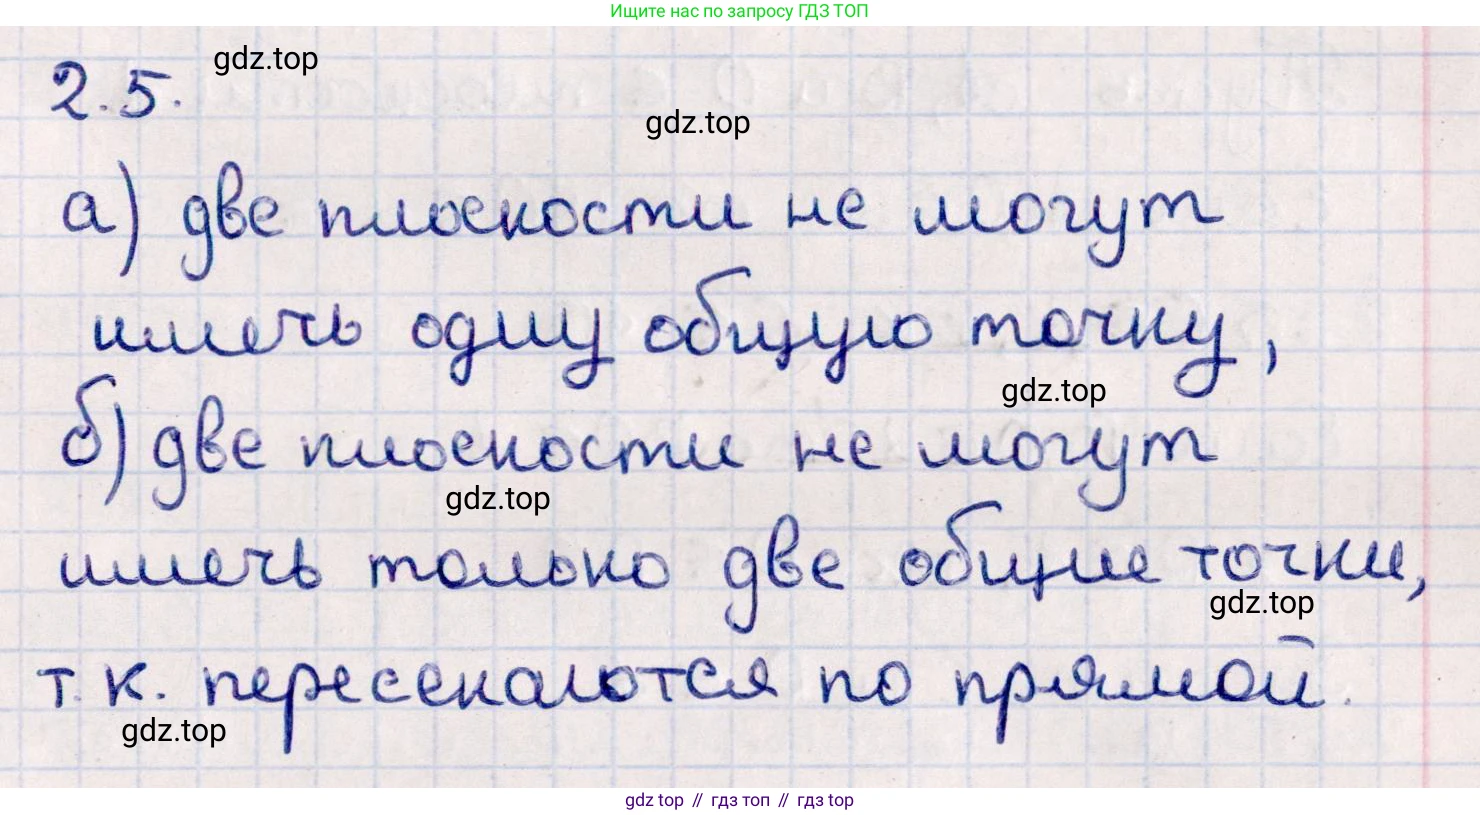 Ищите нас по запросу ГДЗ ТОП
2.5.
gdz.top
gdz.top
а) две плоскости не могут
иметь одну общую точку,
gdz.top
б) две плоскости не могут
gdz.top
иметь только две общие точки,
gdz.top
т.к. пересекаются по прямой.
gdz.top
gdz top // гдз топ // гдз top